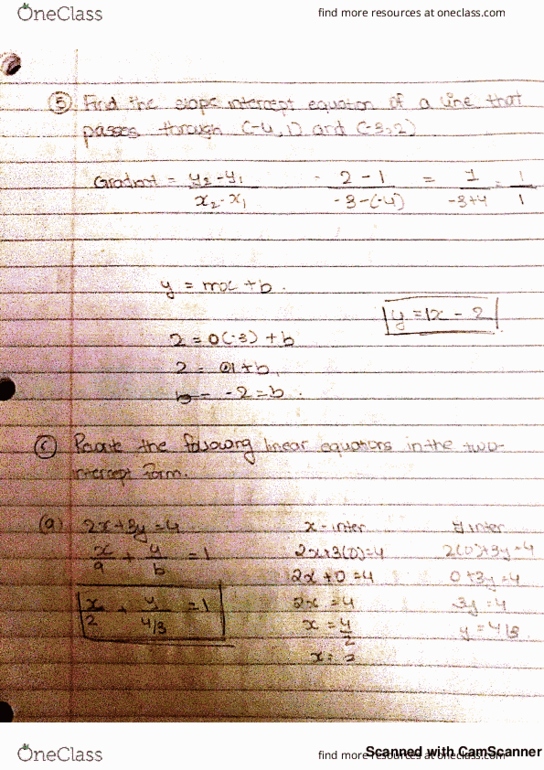 OneClass
find more resources at oneclass.com
⑤ Find the slope intercept equation of a line that
passes through (-4,1) and (-3,2)
Gradient = y₂-y₁ / x₂-x₁ = 2-1 / -3-(-4) = 1 / -3+4 = 1/1
y = mx + b.
y = 1x - 2
2 = 0(-3) + b
2 = 01 + b
-2 = b.
⑥ Rewrite the following linear equations in the two-
intercept form.
(a) 2x+3y=4 x-inter y inter
x/a + y/b = 1 2x+3(0)=4 2(0)+3y=4
2x+0=4 0+3y=4
x/2 + y/4/3 = 1 2x=4 3y=4
x = 4/2 y = 4/3
x = 2
Scanned with CamScanner
OneClass
find more resources at oneclass.com